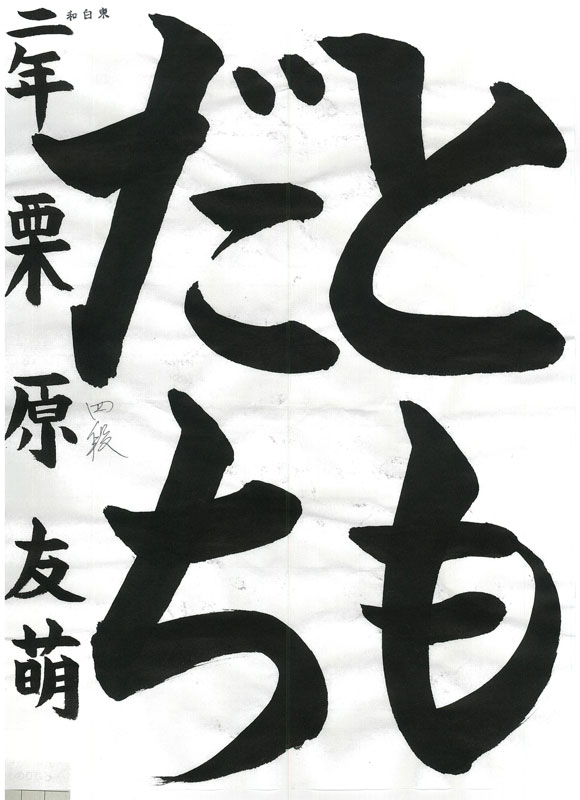 とも
だち
二年 栗原友萌
四段
東白和